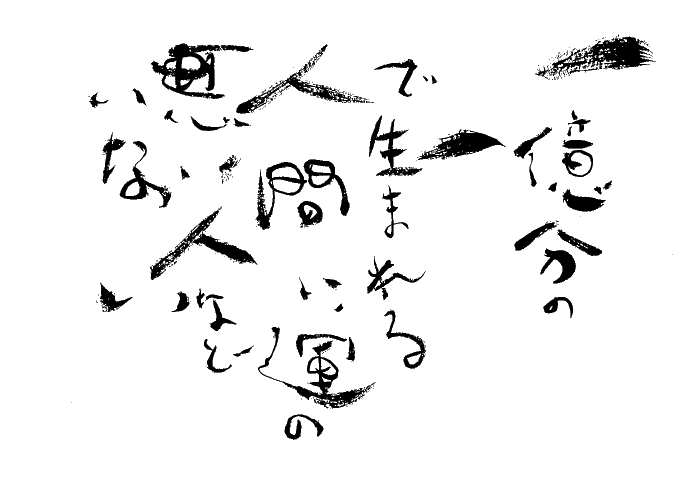 一億分の
一
で生まれる
人間に運の
悪い人など
いない